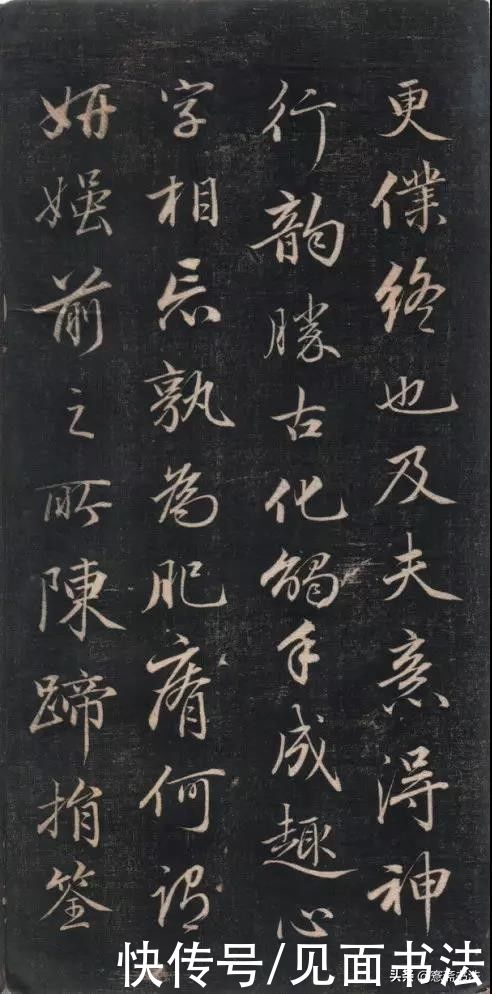 更僕終也及夫意得神
行韵勝古化觸手成趣心
字相忘孰為肥瘠何謂
妍媸前之所陳蹄捐筌
快传号/见面书法
头条